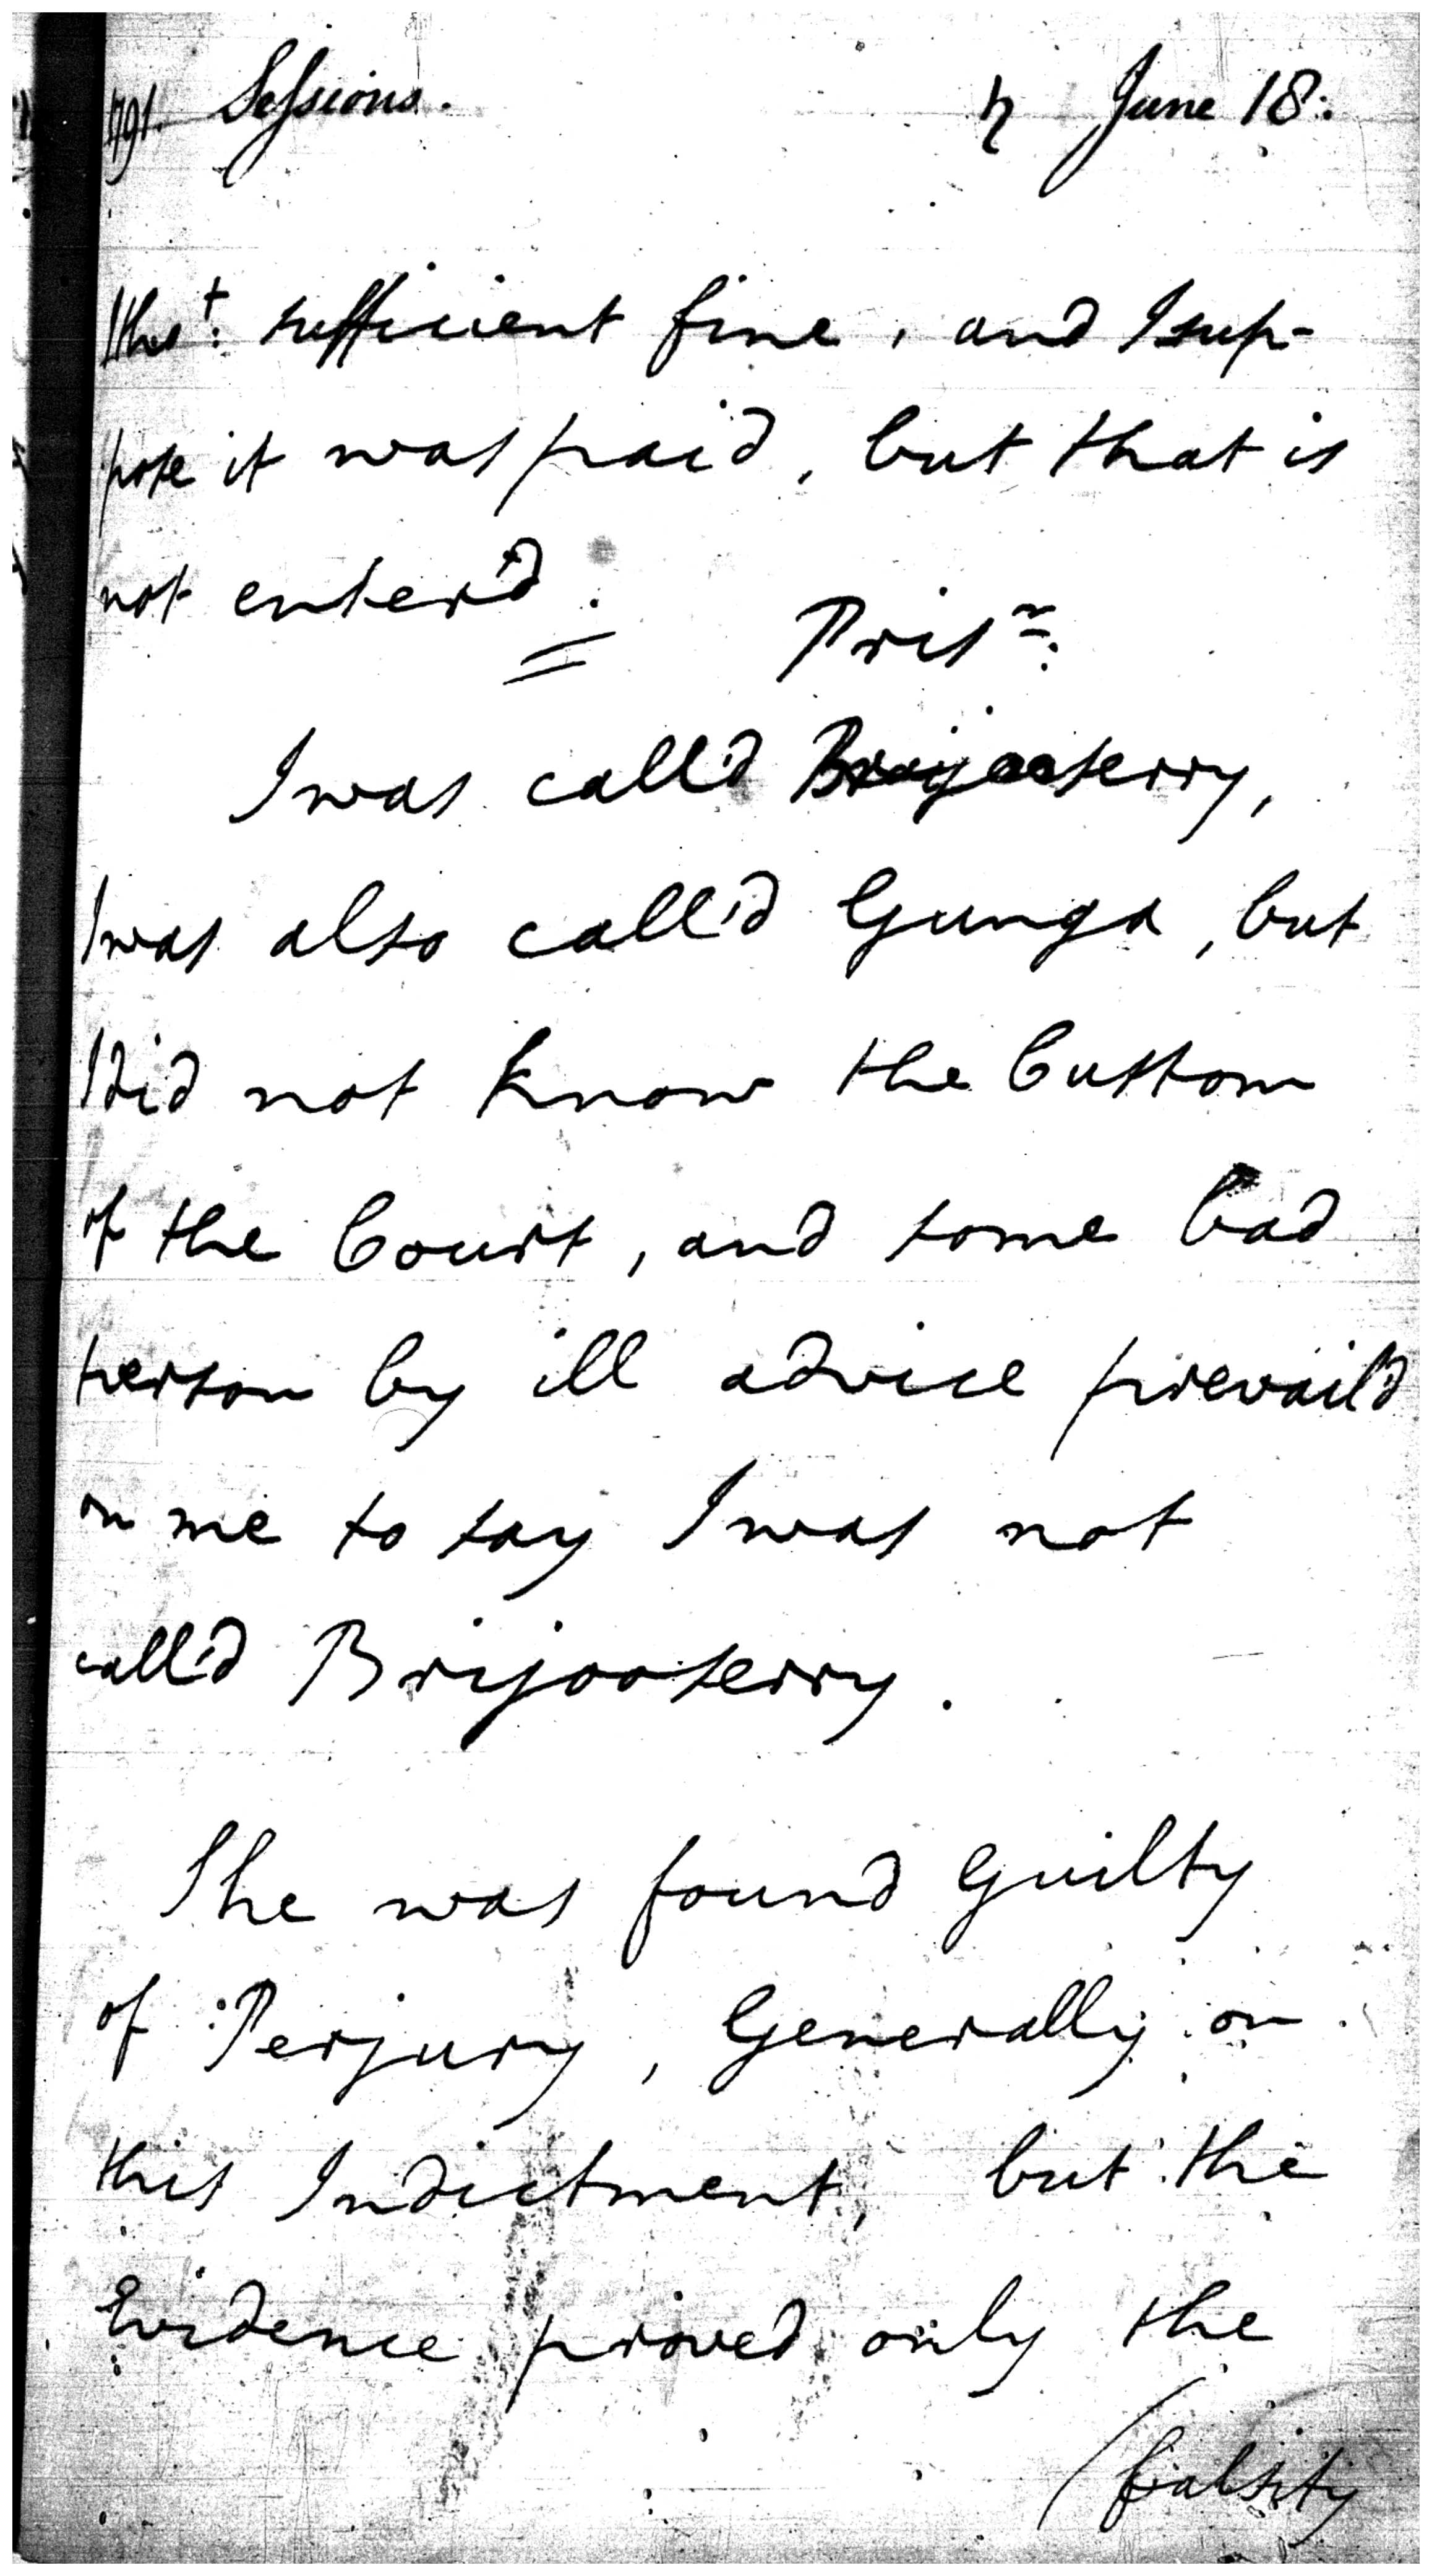 1791. Sessions. ♄ June 18:
tho't: sufficient fine, and I sup-
pose it was paid, but that is
not enter'd.
Pris:r
I was call'd Brijooserry,
I was also call'd Gunga, but
I did not know the Custom
of the Court, and some bad
person by ill advice prevail'd
on me to say I was not
call'd Brijooserry.
She was found Guilty
of Perjury, Generally on
this Indictment, but the
Evidence proved only the
(falsity